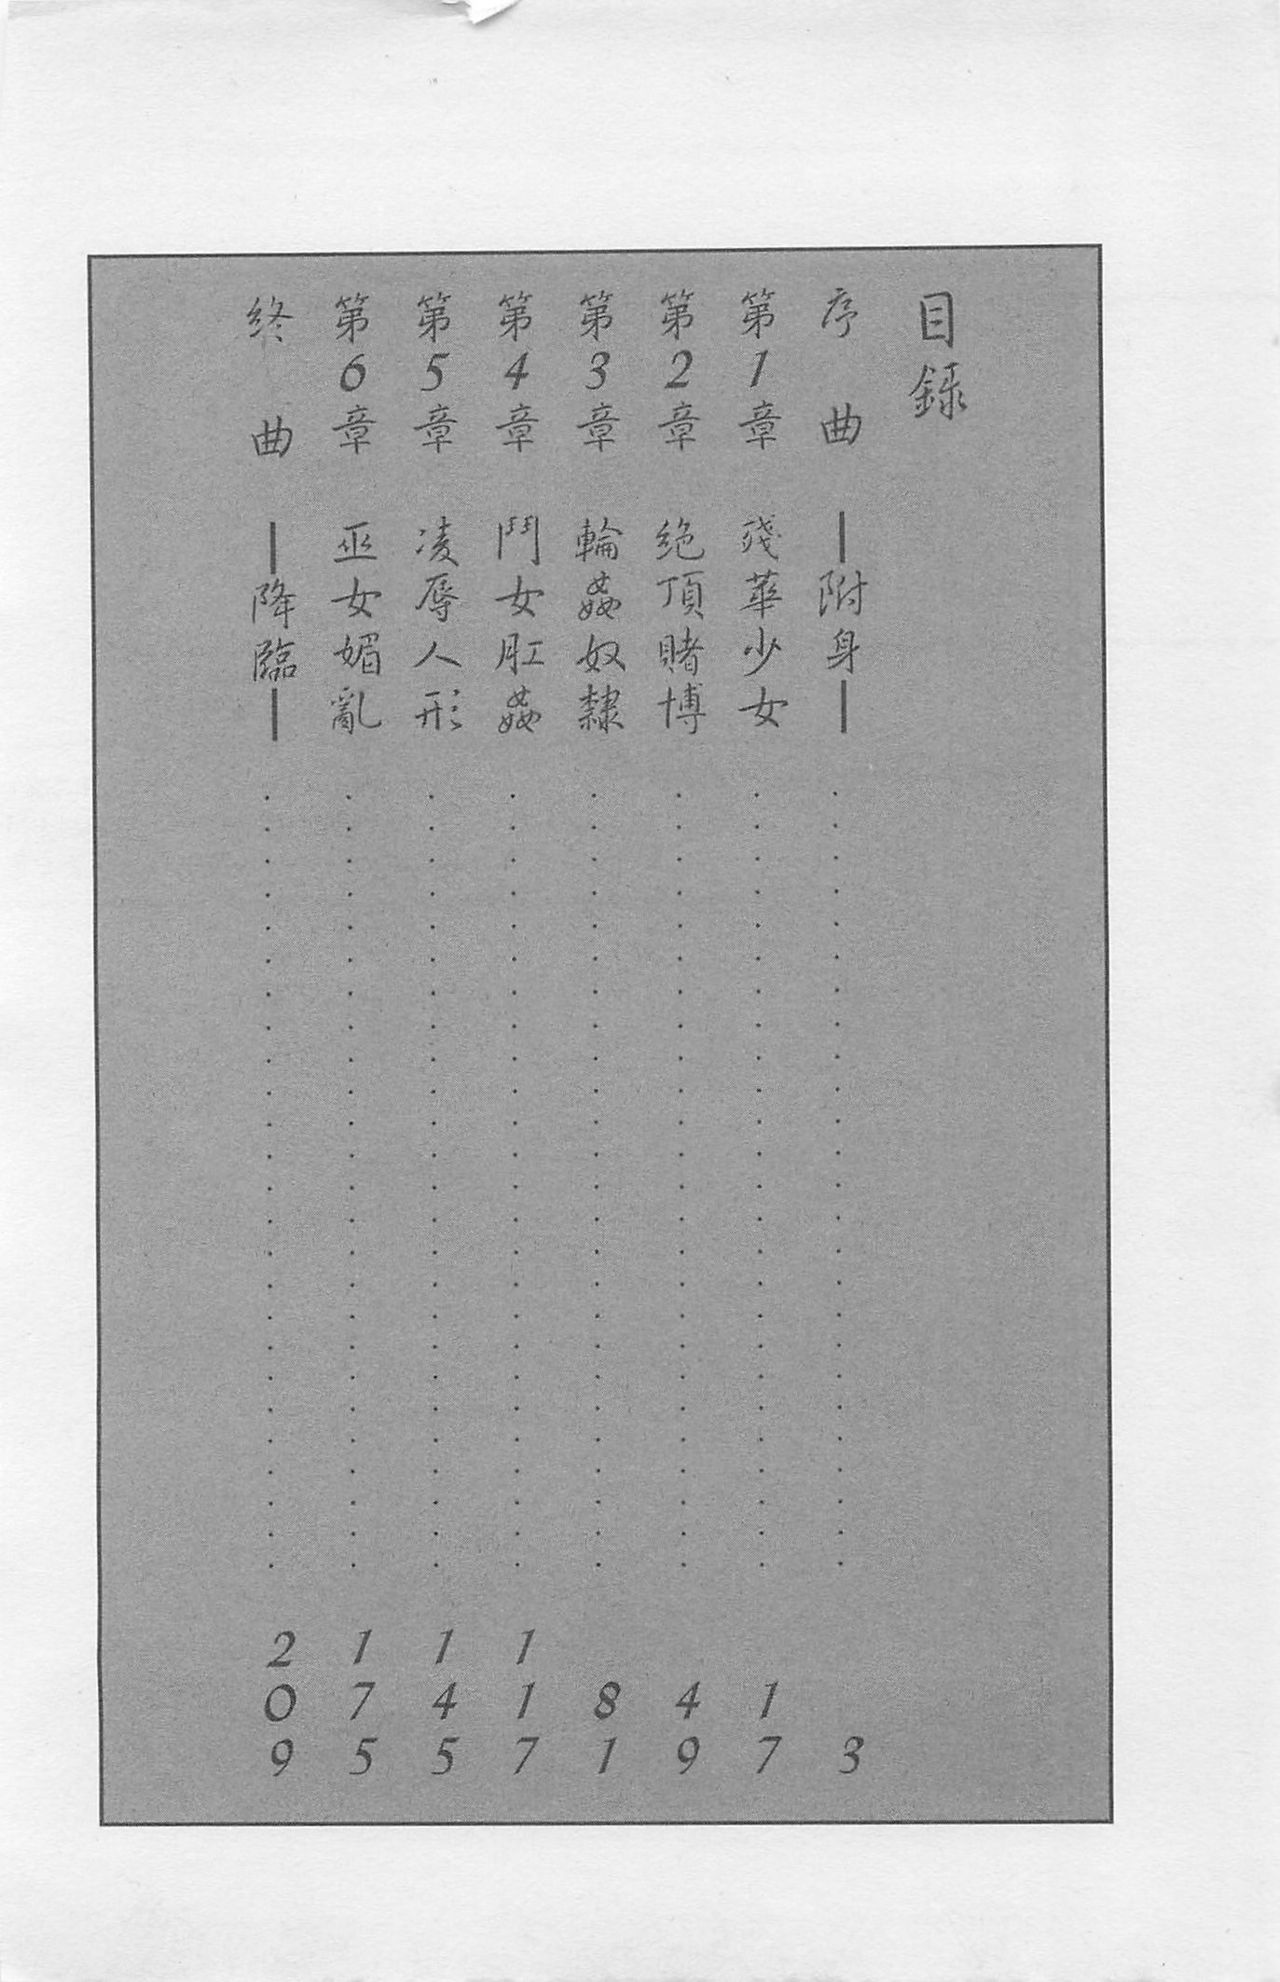 目錄
序曲 —附身— 3
第1章 殘華少女 17
第2章 絶頂賭博 49
第3章 輪姦奴隸 81
第4章 鬥女肛姦 117
第5章 凌辱人形 145
第6章 巫女媚亂 175
終曲 —降臨— 209